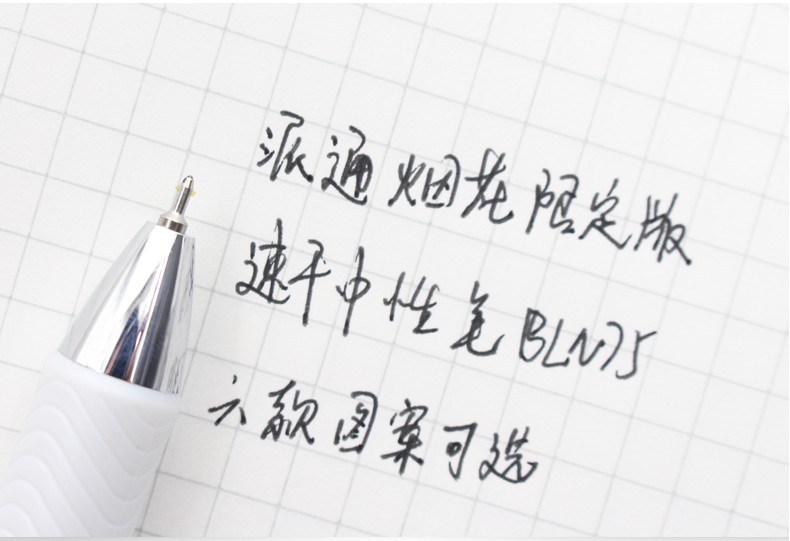 派通烟花限定版
速干中性笔BLN75
六款图案可选